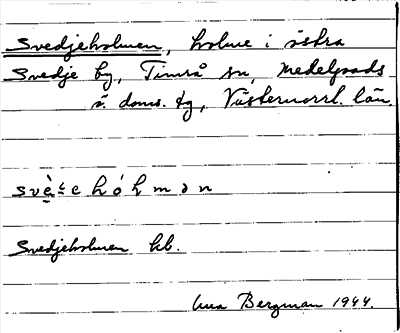 Svedjeholmen, holme i östra
Svedje by, Timrå sn, Medelpads
ö. doms. tg, Västernorrl. län.
Svedjeholmen kb.
Bergman 1944.